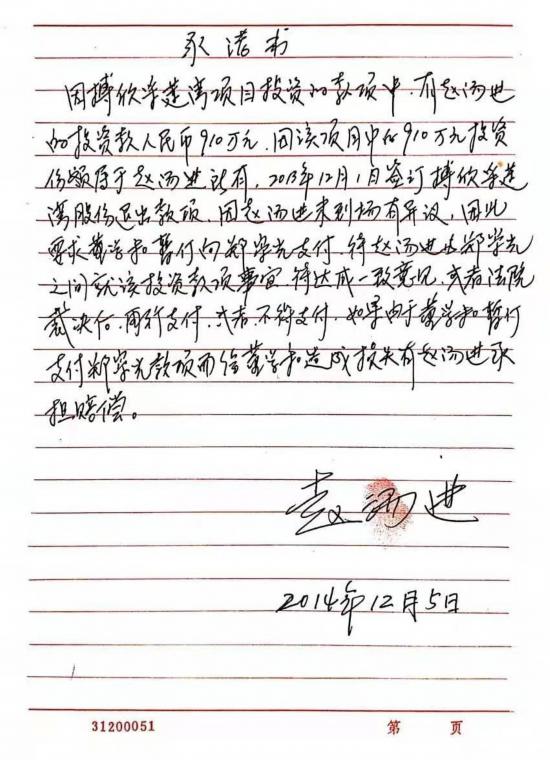 承诺书
因搏欣采莲湾项目投资的款项中，有赵汤进
的投资款人民币910万元，因该项目中的910万元投资
份额属于赵汤进所有，2013年12月1日签订搏欣采莲
湾股份退出款项，因赵汤进未到场有异议，因此
要求董学和暂停向郑学光支付，待赵汤进与郑学光
之间就该投资款项事宜，待达成一致意见，或者法院
裁决后，再行支付，或者不行支付，如果由于董学和暂停
支付郑学光款项而给董学和造成损失有赵汤进承
担赔偿。
赵汤进
2014年12月5日
31200051 第 页